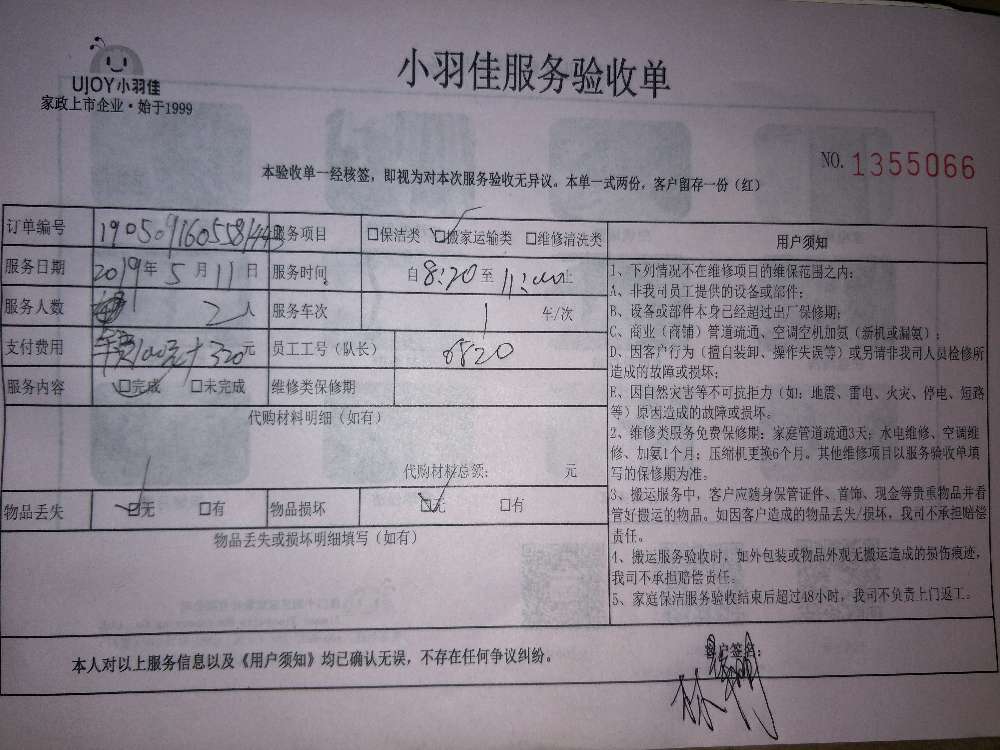 UJOY小羽佳
家政上市企业·始于1999
小羽佳服务验收单
NO. 1355066
本验收单一经核签，即视为对本次服务验收无异议。本单一式两份，客户留存一份（红）
订单编号 服务项目 □保洁类 □搬家运输类 □维修清洗类
服务日期 2019年5月11日 服务时间 自8:20至11:00止
服务人数 2人 服务车次 1 车/次
支付费用 100元+320元 员工工号（队长） 6820
服务内容 □完成 □未完成 维修类保修期
代购材料明细（如有）
代购材料总额： 元
物品丢失 □无 □有 物品损坏 □无 □有
物品丢失或损坏明细填写（如有）
用户须知
1、下列情况不在维修项目的维保范围之内：
A、非我司员工提供的设备或部件；
B、设备或部件本身已经超过出厂保修期；
C、商业（商铺）管道疏通、空调空机加氨（新机或漏氨）；
D、因客户行为（擅自装卸、操作失误等）或另请非我司人员检修所
造成的故障或损坏；
E、因自然灾害等不可抗拒力（如：地震、雷电、火灾、停电、短路
等）原因造成的故障或损坏。
2、维修类服务免费保修期：家庭管道疏通3天；水电维修、空调维
修、加氨1个月；压缩机更换6个月。其他维修项目以服务验收单填
写的保修期为准。
3、搬运服务中，客户应随身保管证件、首饰、现金等贵重物品并看
管好搬运的物品。如因客户造成的物品丢失/损坏，我司不承担赔偿
责任。
4、搬运服务验收时，如外包装或物品外观无搬运造成的损伤痕迹，
我司不承担赔偿责任。
5、家庭保洁服务验收结束后超过48小时，我司不负责上门返工。
本人对以上服务信息以及《用户须知》均已确认无误，不存在任何争议纠纷。
客户签名：